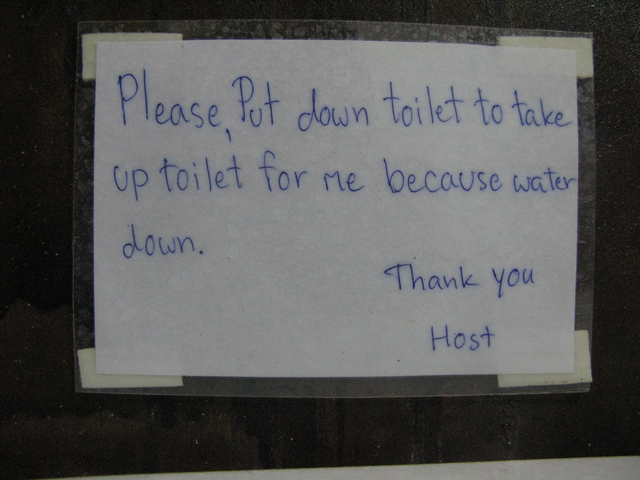 Please, Put down toilet to take
up toilet for me because water
down.
Thank you
Host